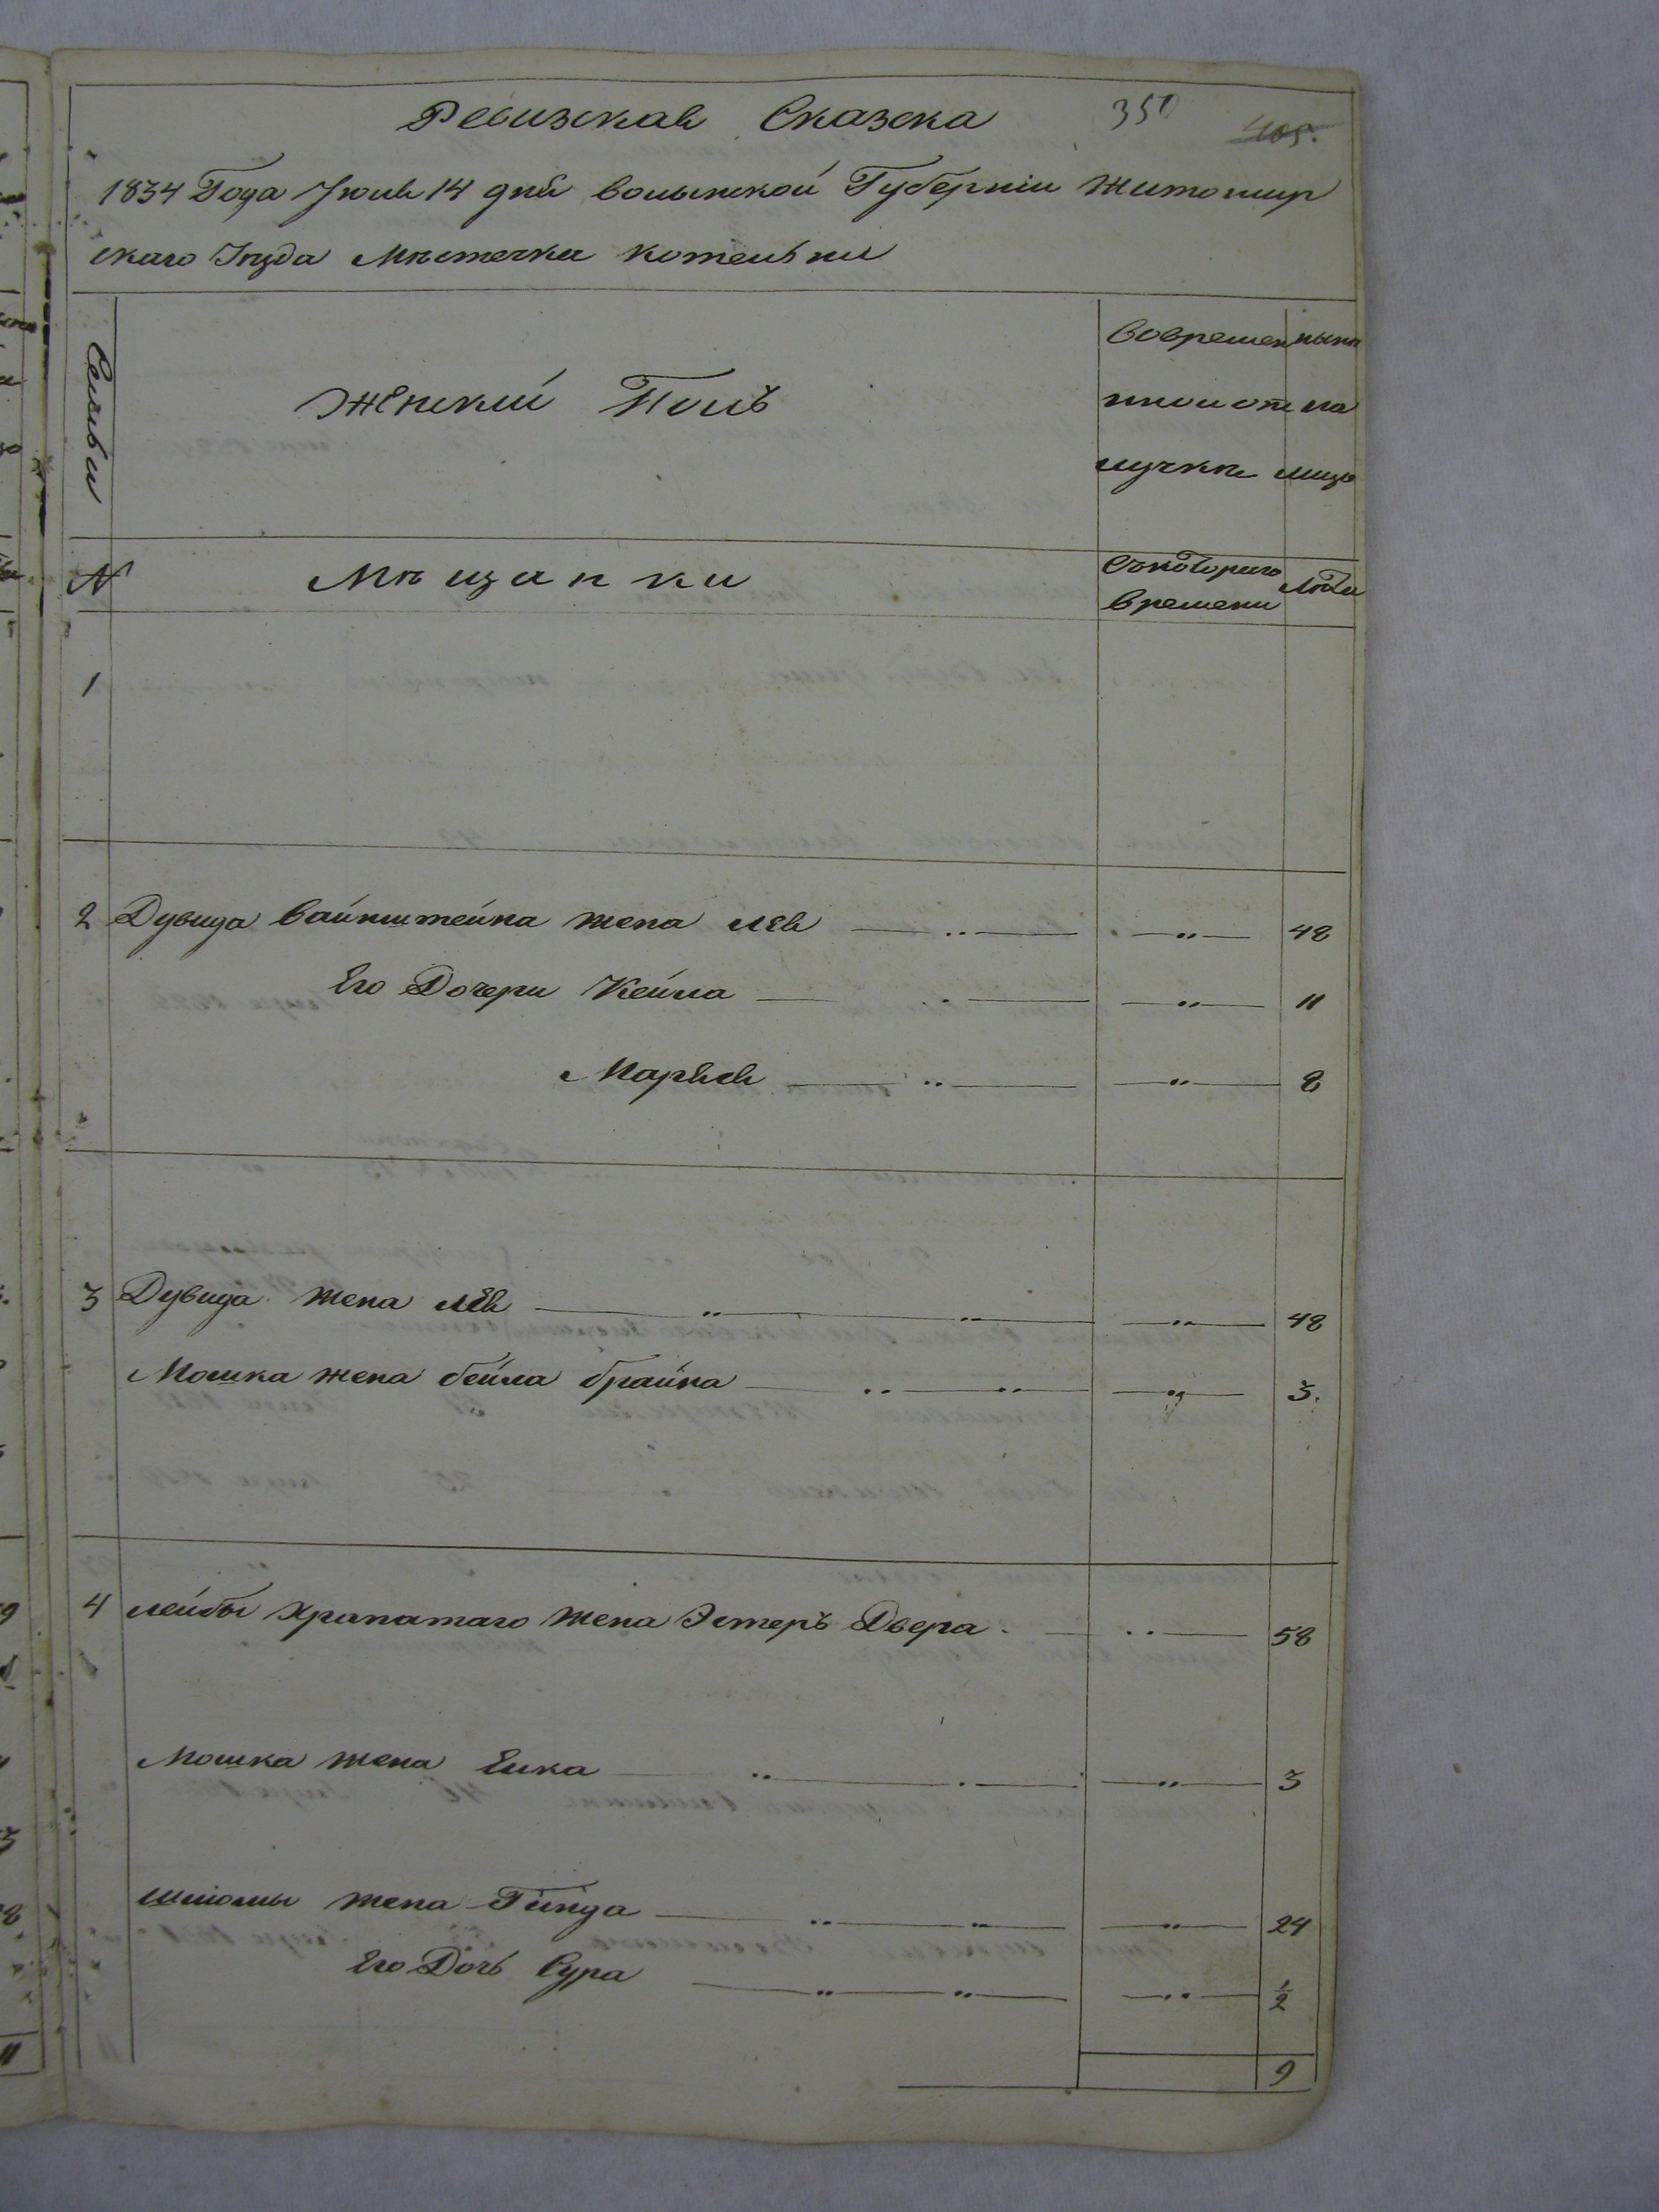 Ревизская Сказка 350 405.
1834 Года Июля 14 дня волынской Губерніи Житомир
скаго Уезда Мѣстечка Котельни
Семьи
Женский Полъ
вовремен
ныне
ной от
на
лучкѣ
лицо
№
Мѣщанки
Съкоторого
времени
Лѣта
1
2 Дувида Вайнштейна жена Лея — „ — — „ — 48
Его Дочери Кейла — „ — — „ — 11
Марьея — „ — — „ — 8
3 Дувида жена Лея — „ — „ — — „ — 48
Мошка жена бейла брайна — „ — „ — — „ — 3.
4 лейбы хранатаго жена Эстеръ Двера. — „ — 58
Мошка жена Елка — „ — „ — — „ — 3
шломы жена Гинда — „ — „ — — „ — 24
Его Дочь Сура — „ — „ — — „ — ½
9